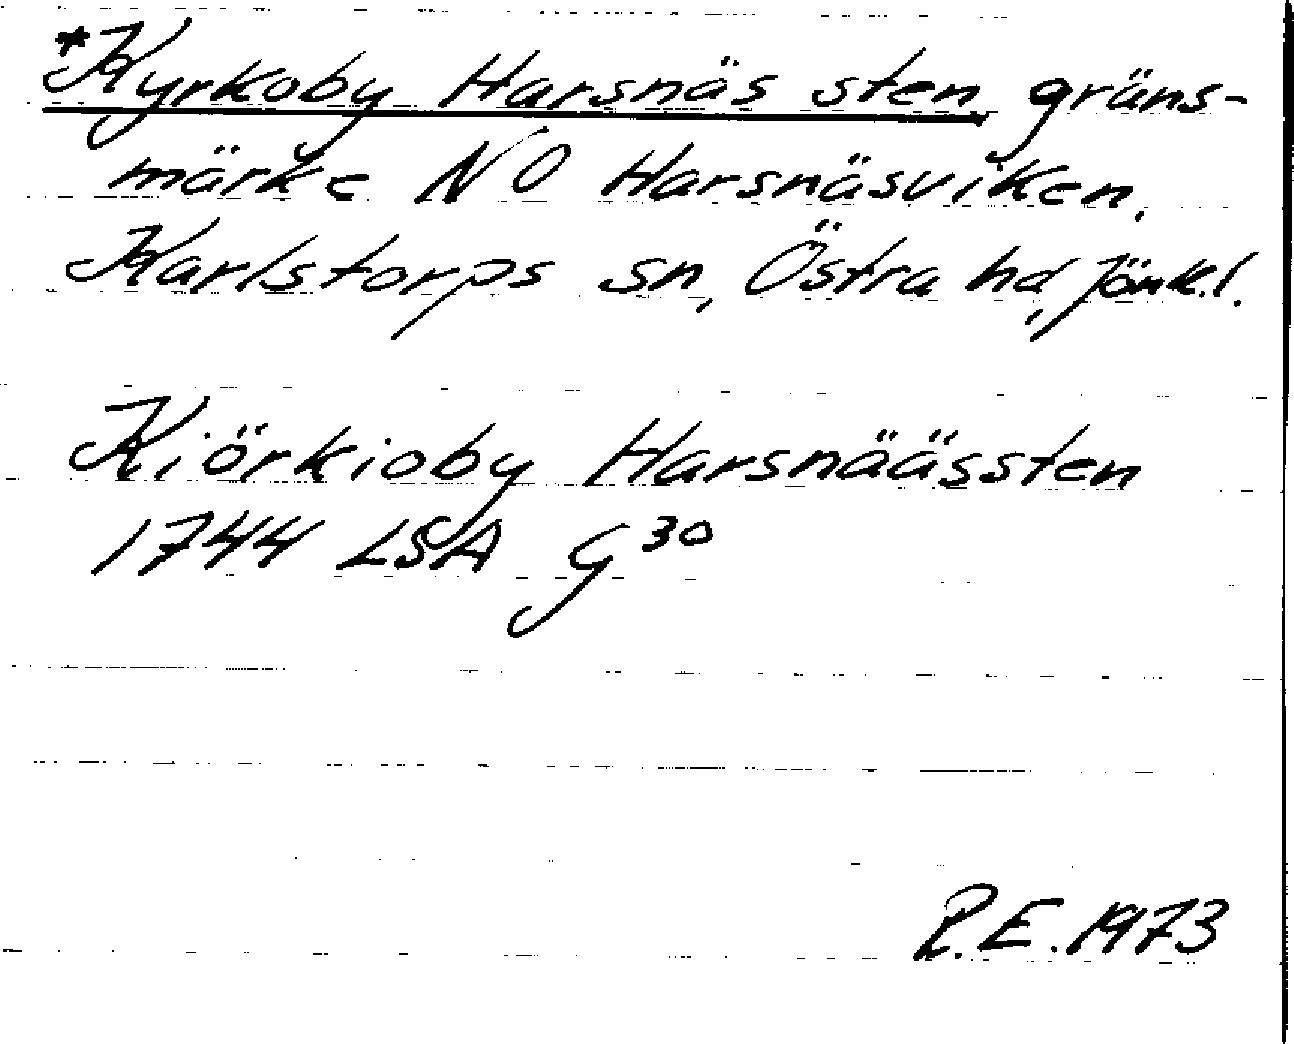 *Kyrkoby Harsnäs sten gräns-
märke NO Harsnäsviken,
Karlstorps sn, Östra hd, Jönk.l.
Kiörkioby Harsnäässten
1744 LSA G 30
R.E. 1973